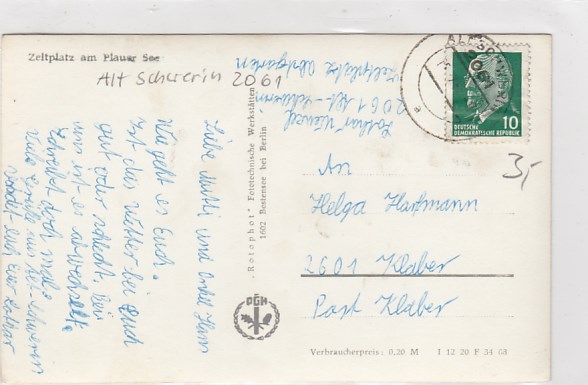 Zeltplatz am Plauer See
Alt Schwerin 2061
Liebe Mutti und Onkel Hans
Wie geht es Euch.
Ist das Wetter bei Euch
gut oder schlecht. Bei
uns ist es abwechselt.
Schreibt doch mal.
Viele Grüße aus Alt-Schwerin
sendet Euch Euer Lothar
Lothar
2061 Alt-Schwerin
Zeltplatz
"Rotophot" Fototechnische Werkstätten
1602 Bestensee bei Berlin
PGH
2061
10
DEUTSCHE
DEMOKRATISCHE REPUBLIK
3,-
An
Helga Hartmann
2601 Klaber
Post Klaber
Verbraucherpreis: 0,20 M I 12 20 F 34 68